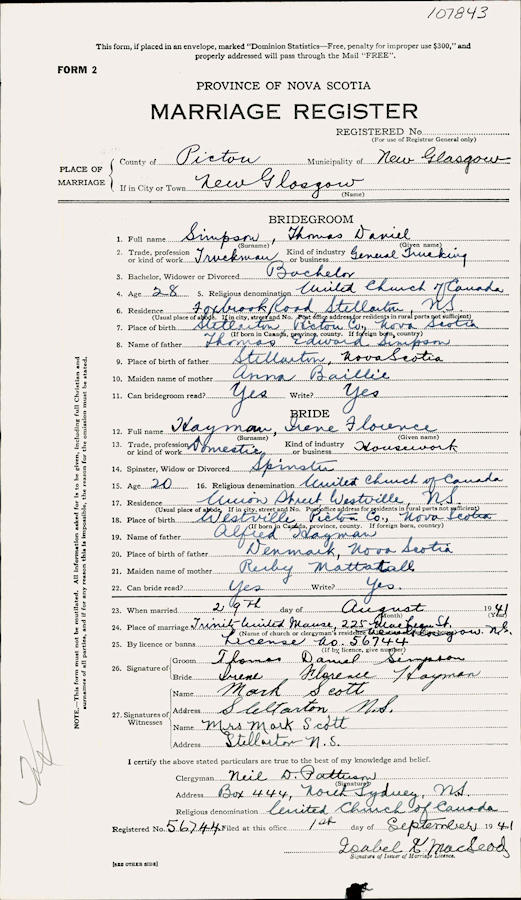 107843
This form, if placed in an envelope, marked "Dominion Statistics—Free, penalty for improper use $300," and
properly addressed will pass through the Mail "FREE".
FORM 2
PROVINCE OF NOVA SCOTIA
MARRIAGE REGISTER
REGISTERED No.
(For use of Registrar General only)
PLACE OF MARRIAGE
County of Pictou Municipality of New Glasgow
If in City or Town New Glasgow
(Name)
BRIDEGROOM
1. Full name Simpson, Thomas Daniel
(Surname) (Given name)
2. Trade, profession or kind of work Truckman Kind of industry or business General Trucking
3. Bachelor, Widower or Divorced Bachelor
4. Age 28 5. Religious denomination United Church of Canada
6. Residence Foxbrook Road Stellarton N.S.
(Usual place of abode. If in city, street and No. Post office address for residents in rural parts not sufficient)
7. Place of birth Stellarton, Pictou Co., Nova Scotia
(If born in Canada, province, county. If foreign born, country)
8. Name of father Thomas Edward Simpson
9. Place of birth of father Stellarton, Nova Scotia
10. Maiden name of mother Anna Baillie
11. Can bridegroom read? Yes Write? Yes
BRIDE
12. Full name Hayman, Irene Florence
(Surname) (Given name)
13. Trade, profession or kind of work Domestic Kind of industry or business Housework
14. Spinster, Widow or Divorced Spinster
15. Age 20 16. Religious denomination United Church of Canada
17. Residence Union Street Westville, N.S.
(Usual place of abode. If in city, street and No. Post office address for residents in rural parts not sufficient)
18. Place of birth Westville Pictou Co., Nova Scotia
(If born in Canada, province, county. If foreign born, country)
19. Name of father Alfred Hayman
20. Place of birth of father Denmark, Nova Scotia
21. Maiden name of mother Ruby Mattatall
22. Can bride read? Yes Write? Yes.
23. When married 29th day of August 1941
(Month) (Year)
24. Place of marriage Trinity United Manse, 225 St. New Glasgow. N.S.
(Name of church or clergyman's residence
25. By licence or banns License No. 56744
(If by licence, give number)
26. Signature of
Groom Thomas Daniel Simpson
Bride Irene Florence Hayman
27. Signatures of Witnesses
Name Mark Scott
Address Stellarton N.S.
Name Mrs Mark Scott
Address Stellarton N.S.
I certify the above stated particulars are true to the best of my knowledge and belief.
Clergyman Neil D. Patterson
(Signature)
Address Box 444, North Sydney, N.S.
Religious denomination United Church of Canada
Registered No. 56744 Filed at this office 1st day of September 1941
Isabel K. MacLeod
Signature of Issuer of Marriage Licence.
[SEE OTHER SIDE]
NOTE.—This form must not be mutilated. All information asked for is to be given, including full Christian and
surnames of all parties, and if for any reason this is impossible, the reason for the omission must be stated.